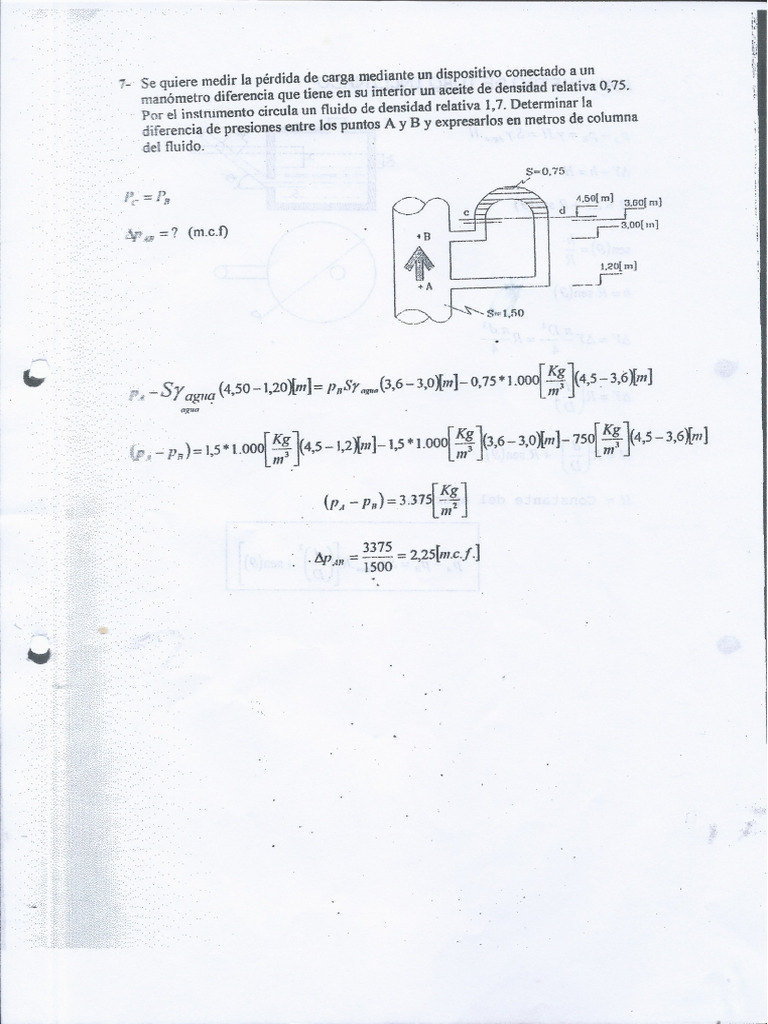 7- Se quiere medir la pérdida de carga mediante un dispositivo conectado a un
manómetro diferencia que tiene en su interior un aceite de densidad relativa 0,75.
Por el instrumento circula un fluido de densidad relativa 1,7. Determinar la
diferencia de presiones entre los puntos A y B y expresarlos en metros de columna
del fluido.
S=0,75
P_C = P_B
c d 4,50[m] 3,60[m]
3,00[m]
Δp_AB = ? (m.c.f)
+ B
1,20[m]
+ A
S=1,50
p_A − Sγ_agua (4,50 − 1,20)[m] = p_B Sγ_agua (3,6 − 3,0)[m] − 0,75 * 1.000[Kg/m³](4,5 − 3,6)[m]
agua
(p_A − p_B) = 1,5 * 1.000[Kg/m³](4,5 − 1,2)[m] − 1,5 * 1.000[Kg/m³](3,6 − 3,0)[m] − 750[Kg/m³](4,5 − 3,6)[m]
(p_A − p_B) = 3.375[Kg/m²]
Δp_AB = 3375/1500 = 2,25[m.c.f.]